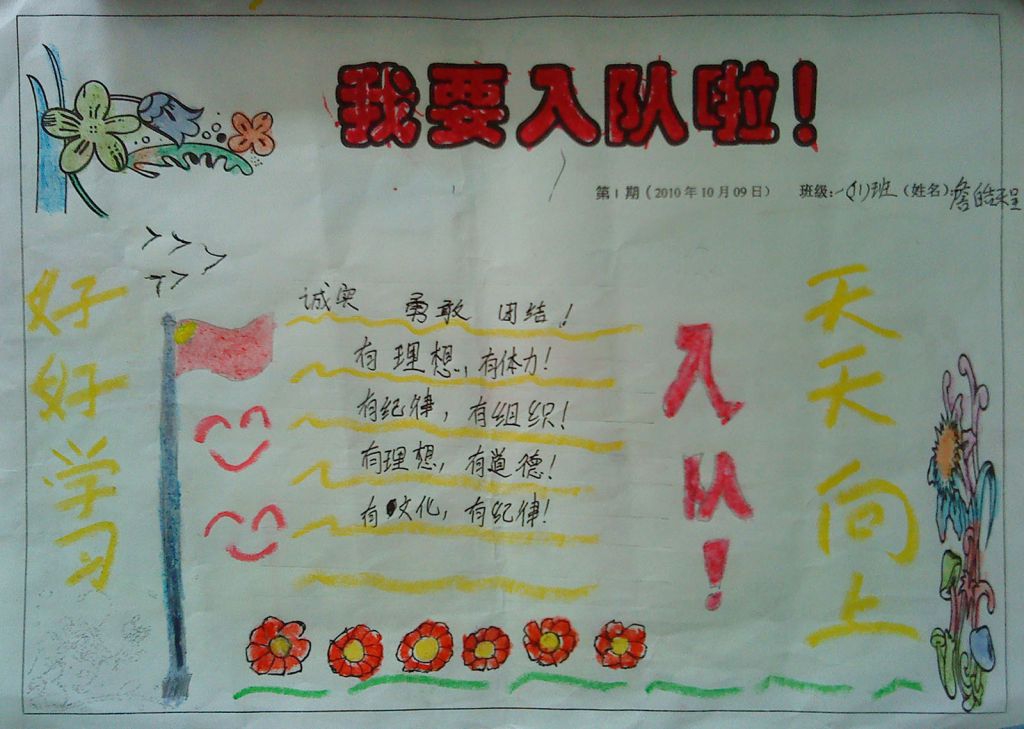 我要入队啦！
第1期（2010年10月09日） 班级:一(1)班（姓名）:詹皓程
好好学习
诚实 勇敢 团结！
有理想，有体力！
有纪律，有组织！
有理想，有道德！
有文化，有纪律！
入队！
天天向上